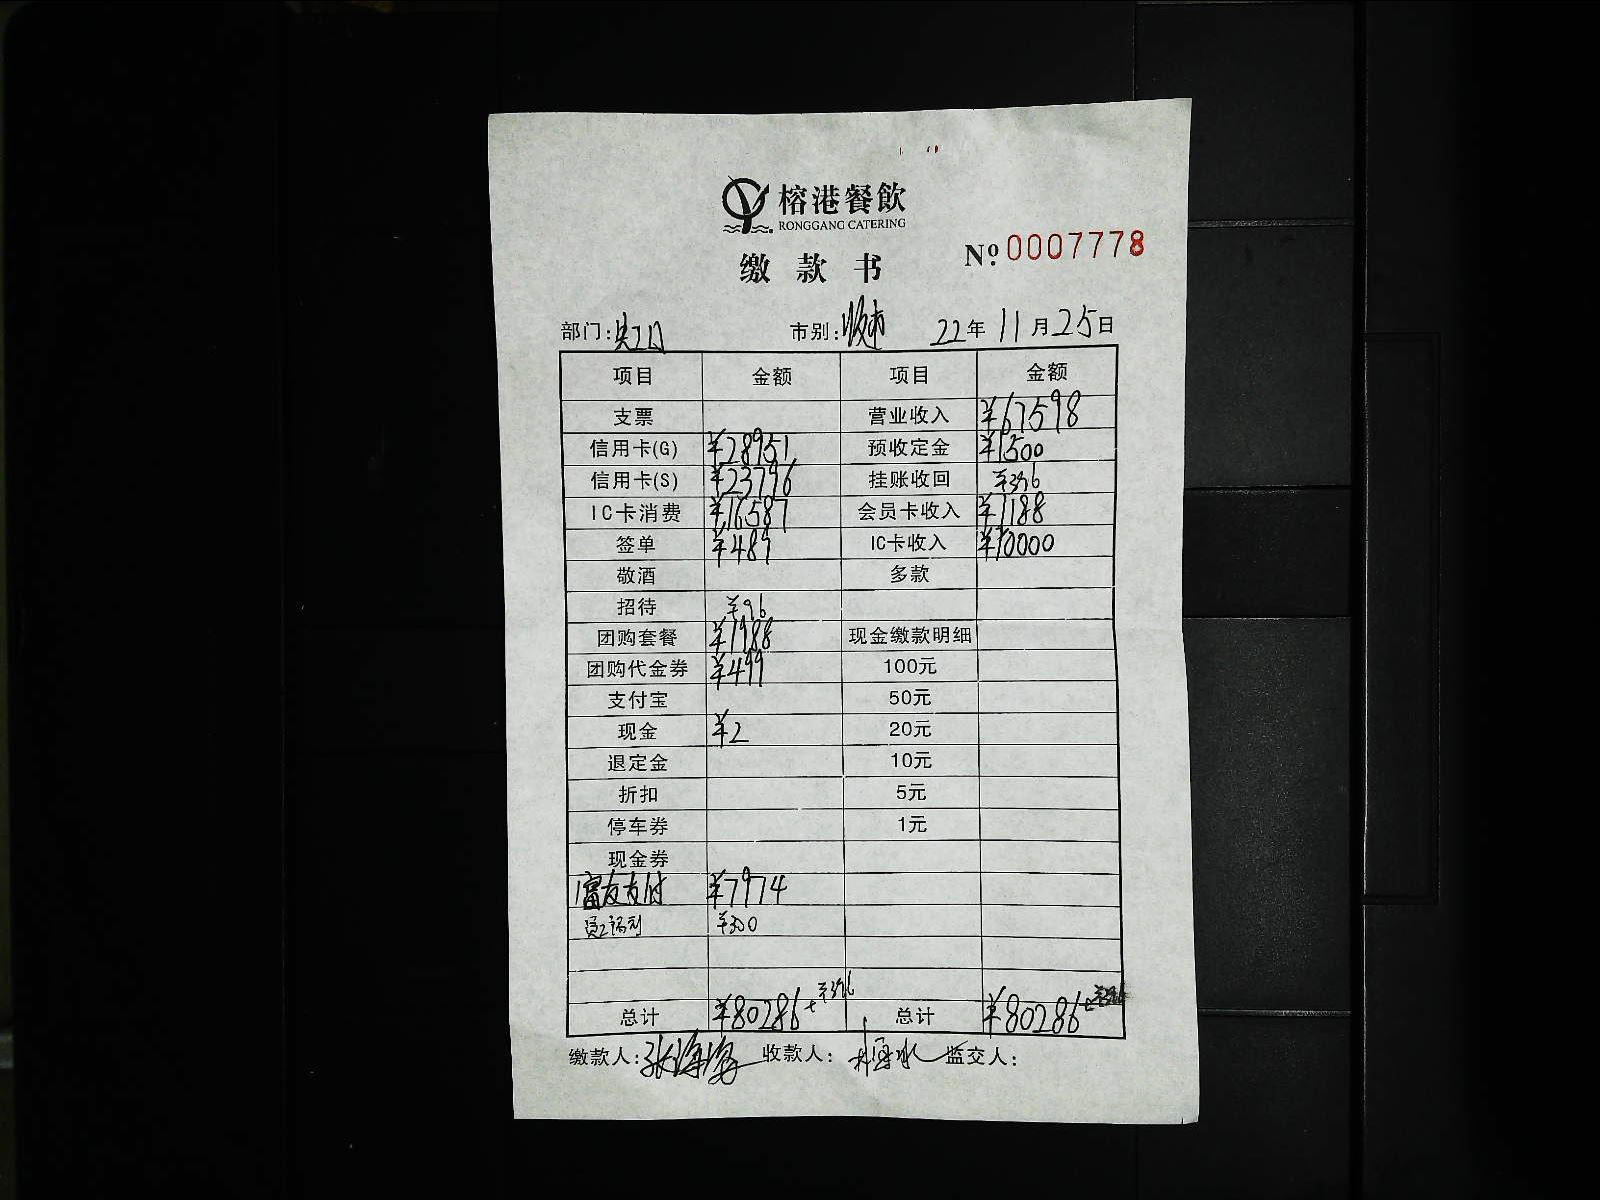 榕港餐飲
RONGGANG CATERING
缴款书
Nº: 0007778
部门: 市别:晚市 22年11月25日
项目 金额 项目 金额
支票 营业收入 ¥67598
信用卡(G) ¥28951 预收定金 ¥1500
信用卡(S) ¥23796 挂账收回 ¥396
IC卡消费 ¥16587 会员卡收入 ¥1188
签单 ¥489 IC卡收入 ¥10000
敬酒 多款
招待 ¥96
团购套餐 ¥1988 现金缴款明细
团购代金券 ¥499 100元
支付宝 50元
现金 ¥2 20元
退定金 10元
折扣 5元
停车券 1元
现金券
富友支付 ¥7974
员工福利 ¥300
总计 ¥80286+¥396 总计 ¥80286+¥396
缴款人:张海海 收款人: 监交人: